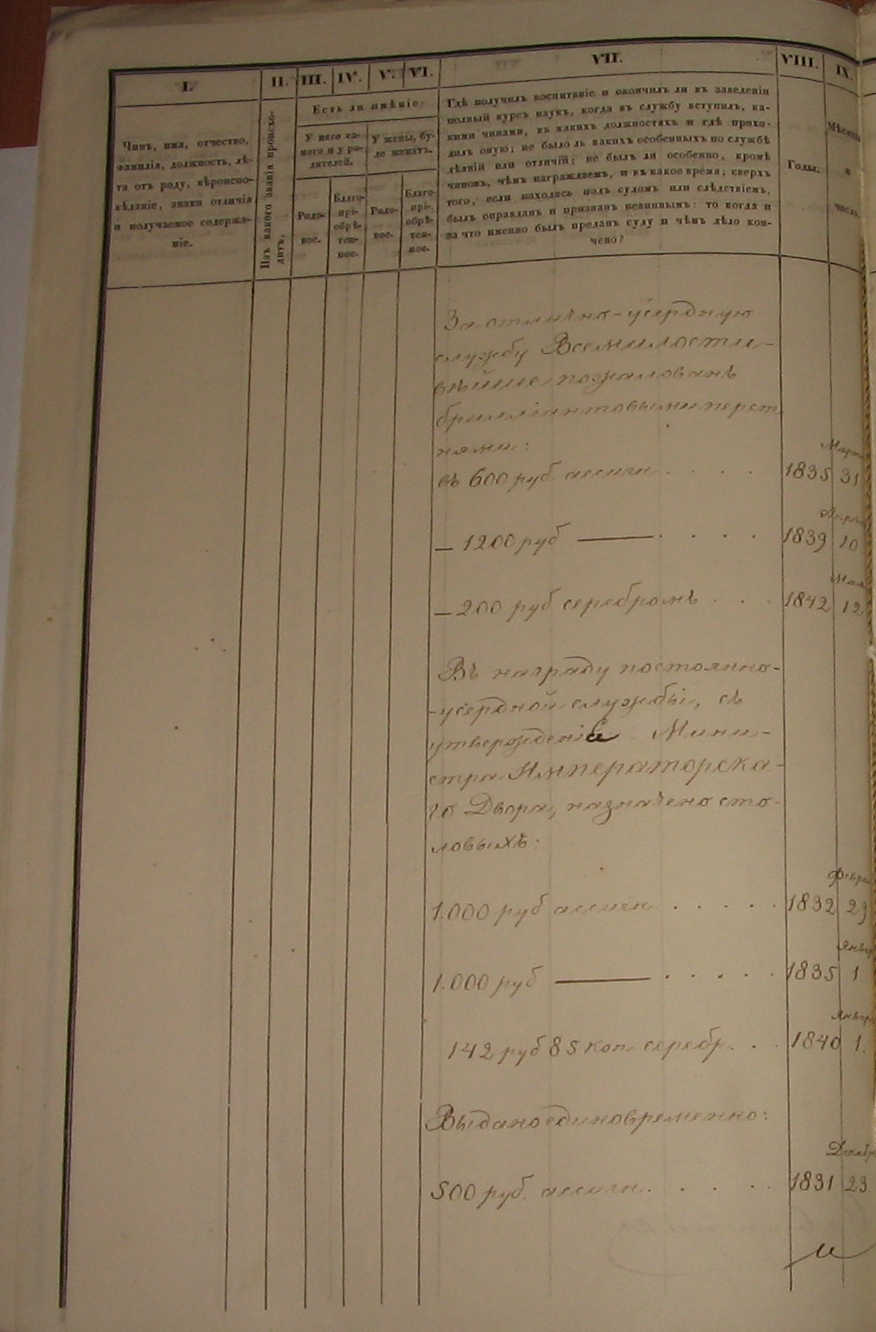 I.
II.
III.
IV.
V.
VI.
VII.
VIII.
IX.
Чинъ, имя, отчество,
фамилія, должность, лѣ-
та отъ роду, вѣроиспо-
вѣданіе, знаки отличія
и получаемое содержа-
ніе.
Изъ какого званія происхо-
дитъ.
Есть ли имѣніе:
У него са-
маго и у ро-
дителей.
У жены, бу-
де женатъ.
Родо-
вое.
Благо-
прі-
обрѣ-
тен-
ное.
Родо-
вое.
Благо-
прі-
обрѣ-
тен-
ное.
Гдѣ получилъ воспитаніе и окончилъ ли въ заведеніи
полный курсъ наукъ, когда въ службу вступилъ, ка-
кими чинами, въ какихъ должностяхъ и гдѣ прохо-
дилъ оную; не было ль какихъ особенныхъ по службѣ
дѣяній или отличій; не былъ ли особенно, кромѣ
чиновъ, чѣмъ награждаемъ, и въ какое время; сверхъ
того, если находясь подъ судомъ или слѣдствіемъ,
былъ оправданъ и признанъ невиннымъ: то когда и
за что именно былъ преданъ суду и чѣмъ дѣло кон-
чено?
Годы.
Мѣсяцы
и
числа.
За отлично-усердную
службу Всемилости-
вѣйше пожалованъ
брилліантовыми перст
нями:
въ 600 руб ассигн. . . . 1835 Март 31
— 1200 руб —— . . . . 1839 Апрѣ 10
— 200 руб серебромъ . . . 1842 Мая 12
Въ награду постоянно-
-усердной службы, съ
утвержденія Мини-
стра Императорска-
го Двора, назначено сто-
ловыхъ:
1.000 руб ассигн. . . . . 1832 Февра 29
1.000 руб —— . . . . 1835 Янва 1
142 руб 85 коп. серебр. . . 1840 Январ 1.
Выдано единовременно:
500 руб. ассигн. . . . . 1831 Декабр 23